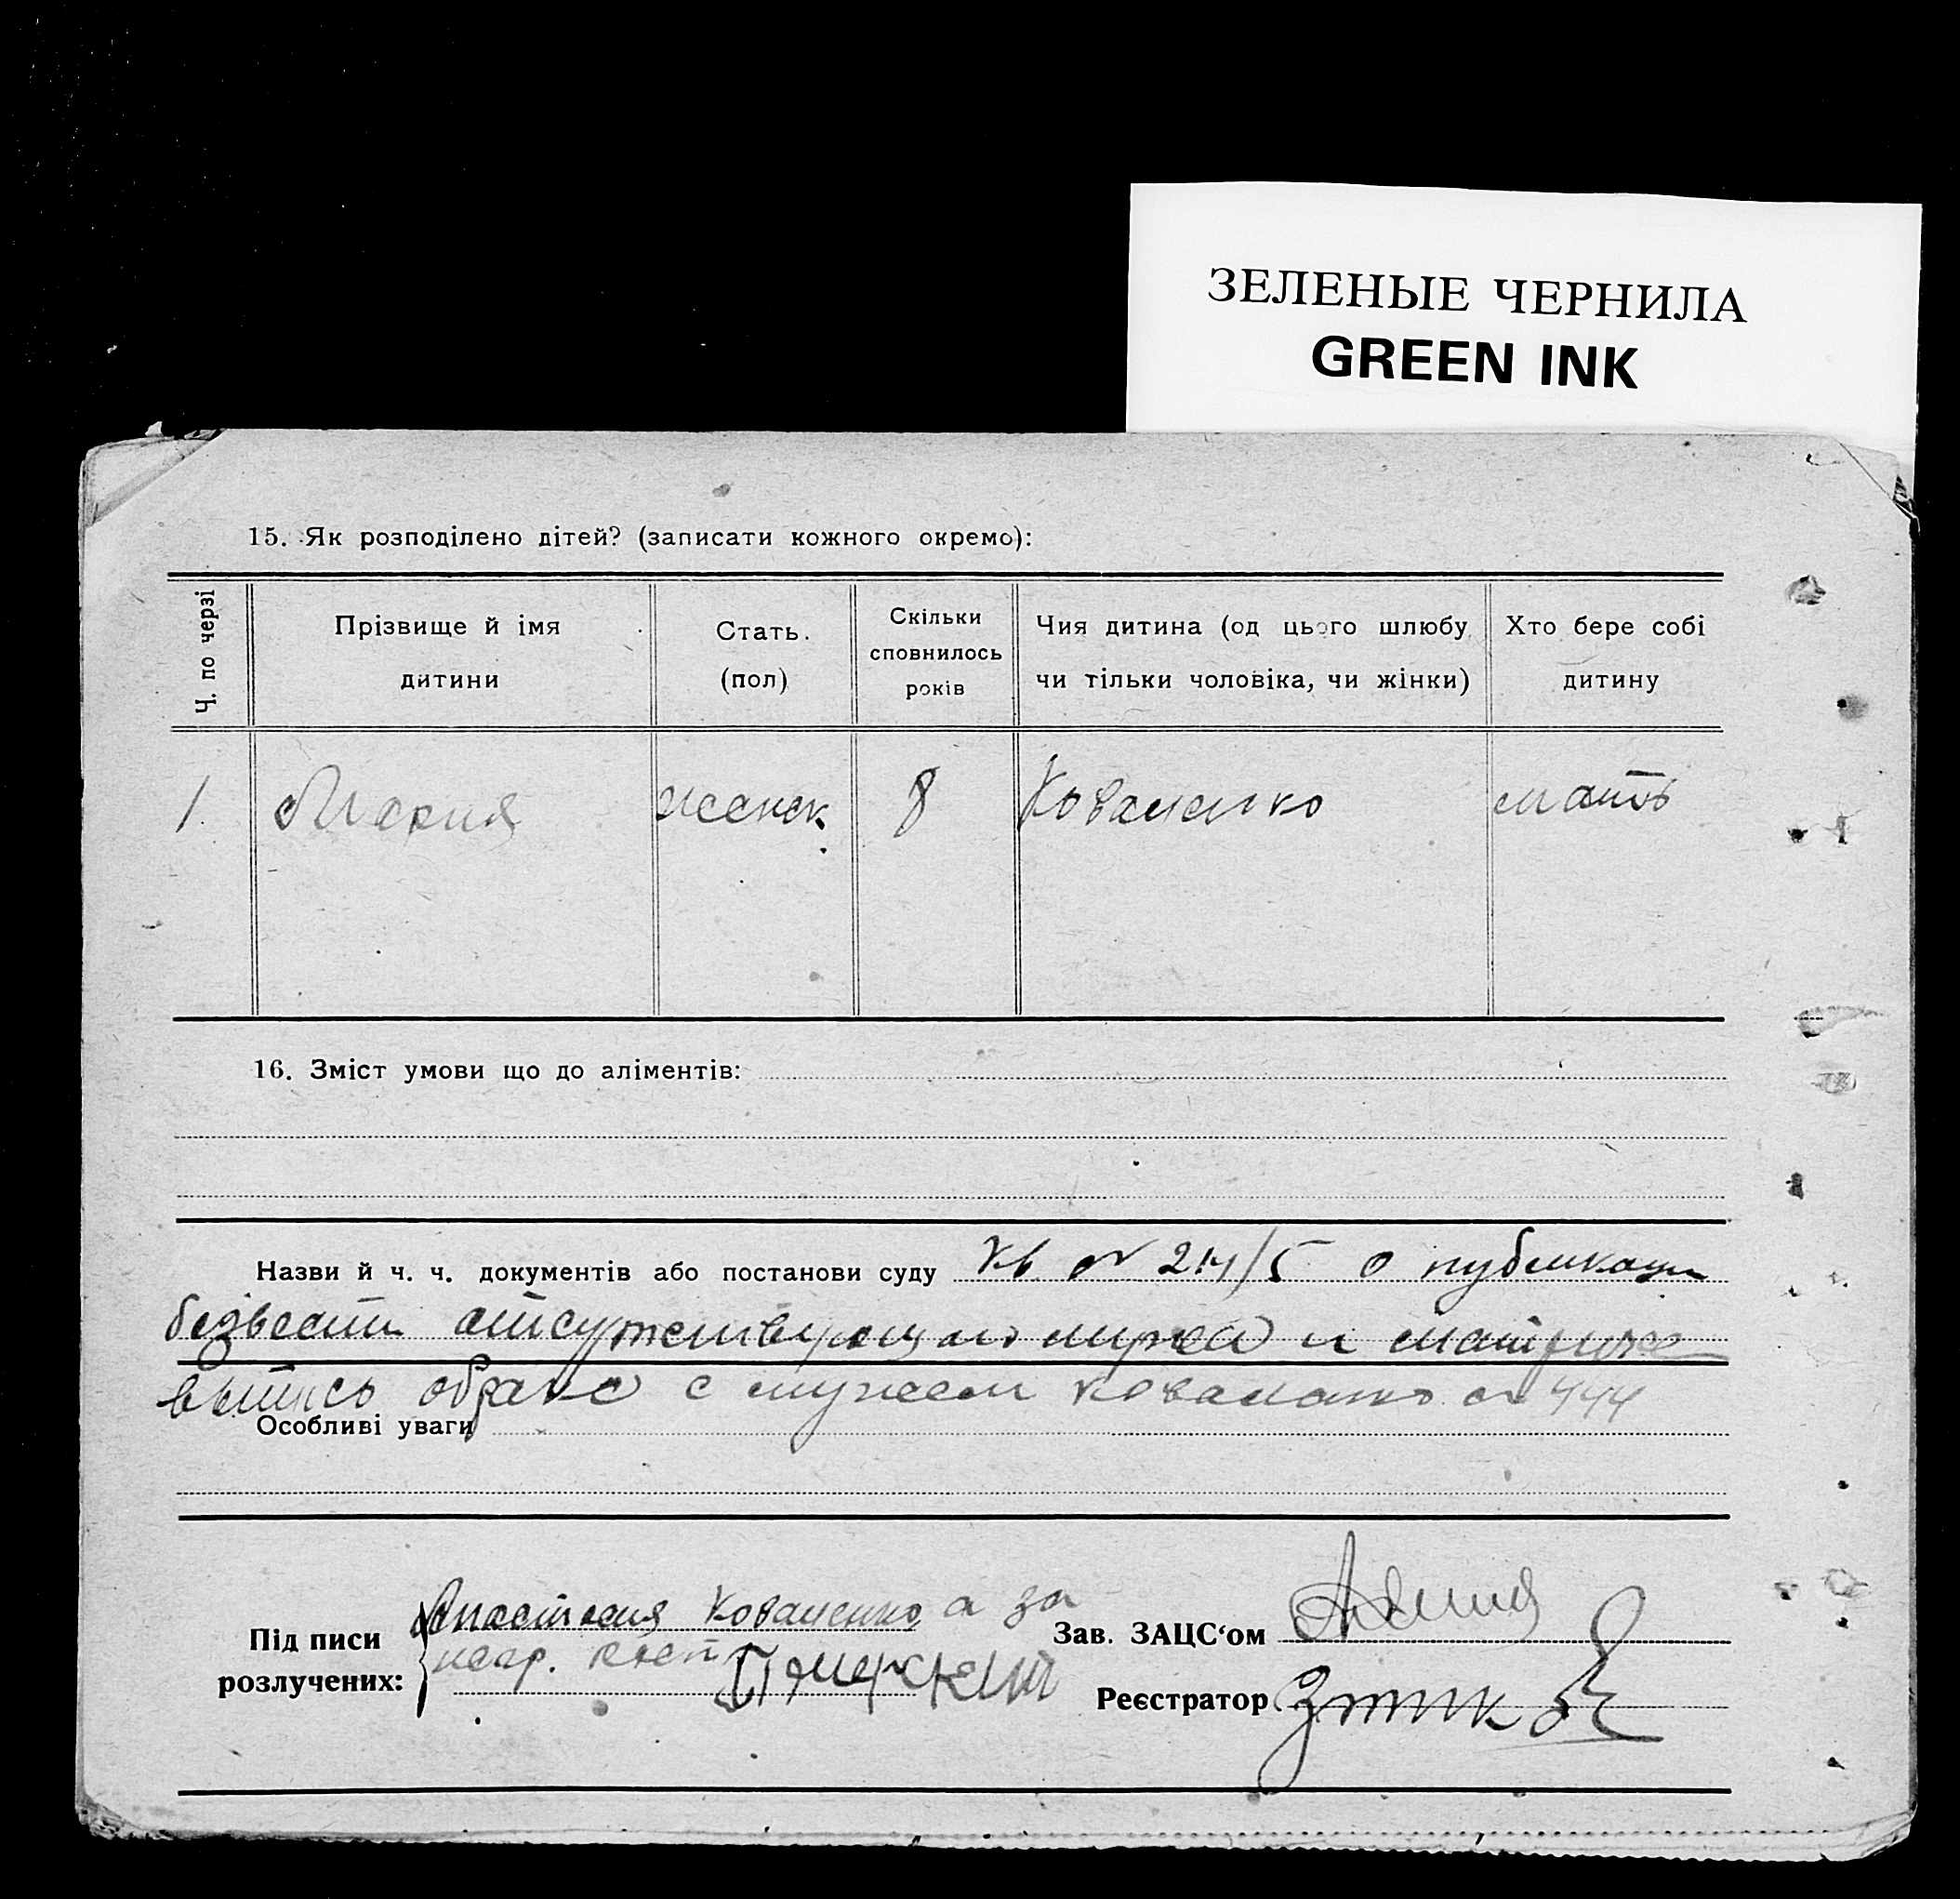 ЗЕЛЕНЫЕ ЧЕРНИЛА
GREEN INK
15. Як розподілено дітей? (записати кожного окремо):
Ч. по черзі
Прізвище й імя
дитини
Стать.
(пол)
Скільки
сповнилось
років
Чия дитина (од цього шлюбу
чи тільки чоловіка, чи жінки)
Хто бере собі
дитину
1. Мария женск. 8 Коваленко мать
16. Зміст умови що до аліментів:
Назви й ч. ч. документів або постанови суду Кв № 214/5 о публикации
безвестн отсутствующаго мужа и
выпись о браке с мужем Коваленко № 444
Особливі уваги
Під писи
розлучених:
Анастасия Коваленко а за
негр.
Зав. ЗАЦС‘ом
Реєстратор